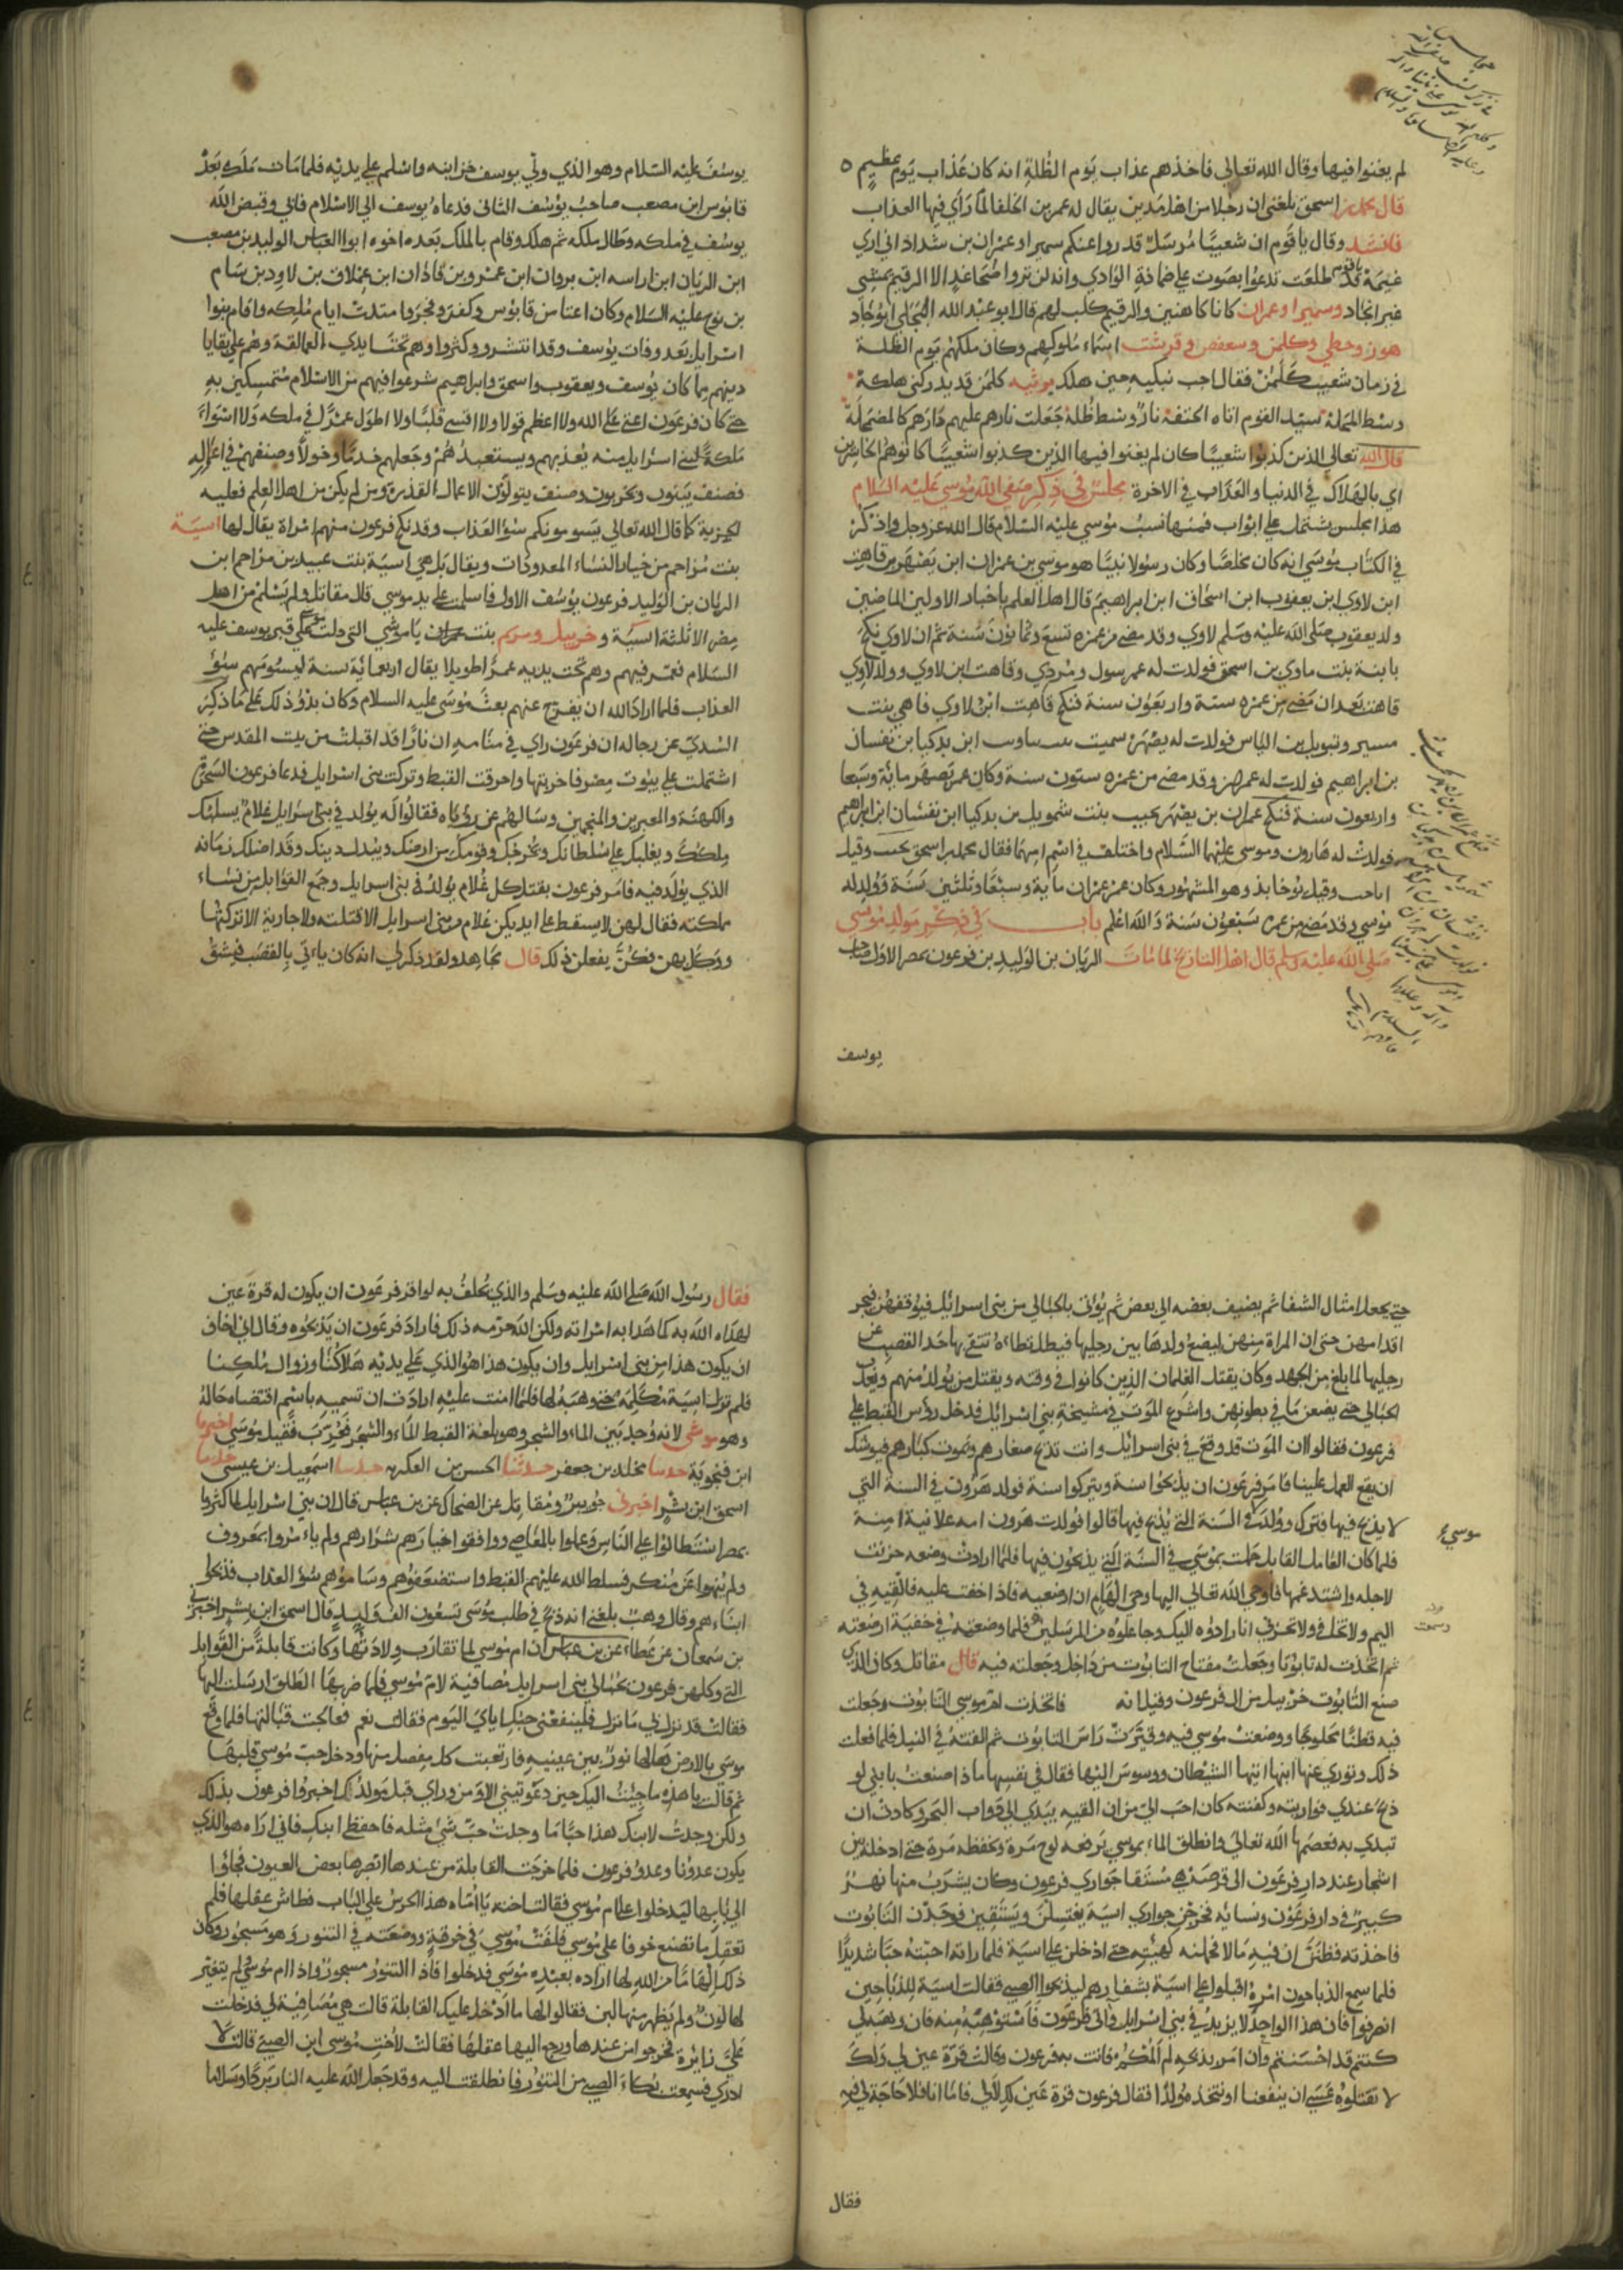 لم يغنوا فيها وقال الله تعالى فاخذهم عذاب يوم الظلة انه كان عذاب يوم عظيم
قال محمد بن اسحق بلغنى ان رجلا من اهل مدين يقال له عمر بن الخلفا لما راي فيها العذاب
فانشد وقال يا قوم ان شعيبا مرسل قد روا عنكم سميرا وعمران بن شداد انى اري
غيمة قد طلعت تدعوا بصوت على ضامة الوادي وانه لن تروا ضحا غد الا الرقيم يمشي
غير انجاد وسميرا وعمران كانا كاهنين والرقيم كلب لهم قال ابو عبد الله البجلي ابوجاد
هوز وحطي وكلمن وسعفص وقرشت اسماء ملوكهم وكان ملكهم يوم الظلة
في زمان شعيب كلمن فقال اخت تبكيه حين هلك يرثيه كلمن قد هد ركني هلكه
وسط المحلة سيد القوم اتاه الحتف نار وسط ظلة جعلت نارهم عليهم دارهم كالمضمحلة
قال الله تعالى الذين كذبوا شعيبا كان لم يغنوا فيها الذين كذبوا شعيبا كانوا هم الخاسرين
اي بالهلاك في الدنيا والعذاب في الاخرة مجلس في ذكر صفي الله موسى عليه السلام
هذا مجلس يشتمل على ابواب فمنها نسب موسى عليه السلام قال الله عز وجل واذكر
في الكتاب موسى انه كان مخلصا وكان رسولا نبيا هو موسى بن عمران ابن يصهر بن قاهث
ابن لاوي ابن يعقوب ابن اسحاق ابن ابراهيم قال اهل العلم باخبار الاولين الماضين
ولد يعقوب صلى الله عليه وسلم لاوي وقد مضى من عمره تسع وثمانون سنة ثم ان لاوي نكح
نابنة بنت ماوي بن اسحق فولدت له عمرسول ومردي وقاهث ابن لاوي وولد لاوي
قاهث بعد ان مضى من عمره ستة واربعون سنة فنكح قاهث ابن لاوي فاهي بنت
بن ابراهيم فولدت له عمران وقد مضى من عمره ستون سنة وكان عمر يصهر ماية وسبعا
واربعون سنة فنكح عمران بن يصهر نجيب بنت شمويل بن بدكيا ابن نفشان ابن ابراهيم
فولدت له هارون وموسى عليهما السلام واختلف في اسم امهما فقال محمد بن اسحق نجيب وقيل
اناحب وقيل يوخابذ وهو المشهور وكان عمر عمران ماية وسبعا وثلثين سنة وولد له
موسى وقد مضى من عمره سبعون سنة والله اعلم باب في ذكر مولد موسى
صلى الله عليه وسلم قال اهل التاريخ لما مات الريان بن الوليد بن فرعون بمصر الاول صاحب
يوسف
يوسف عليه السلام وهو الذي ولي يوسف خزاينه واسلم على يديه فلما مات ملك بعد
قابوس ابن مصعب صاحب يوسف الثانى فدعاه يوسف الى الاسلام فابى وقبض الله
يوسف في ملكه وطال ملكه ثم هلك وقام بالملك بعده اخوه ابو العباس الوليد بن مصعب
ابن الريان ابن اراسه ابن بروان ابن عمرو بن فاذان ابن عملاق بن لاود بن سام
بن نوح عليه السلام وكان اعتا من قابوس وكفر وفجر وامتدت ايام ملكه واقام بنوا
اسرايل بعد وفات يوسف وقد انتشرو وكثروا وهم تحت ايدي العمالقة وهم على بقايا
دينهم مما كان يوسف ويعقوب واسحق وابراهيم شرعوا فيهم من الاسلام متمسكين به
حتى كان فرعون اعتى على الله ولا اعظم قولا ولا اقسى قلبا ولا اطول عمرا في ملكه ولا اسواء
ملكة لبني اسرايل منه يعذبهم ويستعبدهم وجعلهم خدما وخولا وصنفهم في اعماله
فصنف يبنون ويحربون وصنف يتولون الاعمال القذرة ومن لم يكن من اهل العلم فعليه
الجزية كما قال الله تعالى يسومونكم سوء العذاب وقد نكح فرعون منهم امراة يقال لها اسية
بنت مزاحم من خيار النساء المعدودات ويقال بل هي اسية بنت عبيد بن مزاحم ابن
الريان بن الوليد فرعون يوسف الاول فاسلمت على يد موسى قال مقاتل ولم يسلم من اهل
مصر الا ثلثة اسية وخربيل ومريم بنت ياموشي التي دلت على قبر يوسف عليه
السلام فعمر فيهم وهم تحت يديه عمرا طويلا يقال اربعماية سنة ليسومهم سوء
العذاب فلما اراد الله ان يفرج عنهم بعث موسى عليه السلام وكان بدو ذلك على ما ذكر
السدي عن رجاله ان فرعون راي في منامه ان نارا قد اقبلت من بيت المقدس حتى
اشتملت على بيوت مصر فاخربتها واحرقت القبط وتركت بنى اسرايل فدعا فرعون السحرة
والكهنة والمعبرين والمنجمين وسالهم عن روياه فقالوا له يولد في بنى اسرايل غلام يسلبك
ملكك ويغلبك على سلطانك ويخرجك وقومك من ارضك ويبدل دينك وقد اضلك زمانه
الذي يولد فيه فامر فرعون بقتل كل غلام يولد في بنى اسرايل وجمع القوابل من نساء
مملكته فقال لهن لا يسقط على ايديكن غلام من بنى اسرايل الا قتلته ولا جارية الا تركتها
ووكل بهن فكن يفعلن ذلك قال مجاهد ولقد ذكر لى انه كان ياتي بالقصب فيشق
حتى يجعل امثال الشفار ثم يضيف بعضه الى بعض ثم يؤتى بالحبالى من بنى اسرائيل فيوقفهن فيحز
اقدامهن حتى ان المراة منهن ليضع ولدها بين رجليها فيظل تطاءه تتقى بها حد القصب عن
رجليها لما بلغ من الجهد وكان يقتل الغلمان الذين كانوا في وقته ويقتل من يولد منهم ويعذب
الحبالى حتى يضعن ما في بطونهن واشرع الموت في مشيخة بني اسرائيل فدخل روس القبط على
فرعون فقالوا ان الموت قد وقع في بنى اسرائيل وانت تذبح صغارهم وتموت كبارهم فيوشك
ان يقع العمل علينا فامر فرعون ان يذبحوا سنة ويتركوا سنة فولد هرون في السنة التي
لا يذبح فيها فترك وولد في السنة التى يذبح فيها قالوا فولدت هرون امه علانية امنة
موسى
فلما كان العام القابل حملت بموسى في السنة التي يذبحون فيها فلما ارادت وضعه حزنت
لاجله واشتد غمها فاوحى الله تعالى اليها وحى الهام ان ارضعيه فاذا خفت عليه فالقيه في
اليم ولا تخافى ولا تحزنى انا رادوه اليك وجاعلوه من المرسلين فلما وضعته في خفية ارضعته
ثم اتخذت له تابوتا وجعلت مفتاح التابوت من داخل وجعلته فيه قال مقاتل وكان الذي
صنع التابوت خربيل من ال فرعون وقيل انه فاتخذت ام موسى التابوت وجعلت
فيه قطنا محلوجا ووضعت موسى فيه وقيرت راس التابوت ثم القته في النيل فلما فعلت
ذلك وتوري عنها ابنها اتيها الشيطان ووسوس اليها فقال في نفسها ماذا صنعت بابني لو
ذبح عندي فواريته وكفنته كان احب الى من ان القيه بيدي الى دواب البحر وكادت ان
تبدي به فعصمها الله تعالى وانطلق الماء بموسى يرفعه لوح مرة ويخفظه مرة حتى ادخله بين
اشجار عند دار فرعون الى فرضة هى مستقا جواري فرعون وكان يشرب منها نهر
كبير في دار فرعون ونسايه فخرجن جواري اسية يغتسلن ويستقين فوجدن التابوت
فاخذنه فظنن ان فيه مالا فحملنه كهيته حتى ادخلن على اسية فلما راته احبته حبا شديدا
فلما سمع الذباحون امره اقبلوا على اسية بشفارهم ليذبحوا الصبى فقالت اسية للذباحين
انصرفوا فان هذا الواحد لا يزيد في بنى اسرايل واتى فرعون فاستوهبه منه فان وهبه لي
كنتم قد احسنتم وان امر بذبحه لم المكم فاتت به فرعون وقالت قرة عين لي ولك
لا تقتلوه عسى ان ينفعنا او نتخذه ولدا فقال فرعون قرة عين لك لا لي فاما انا فلا حاجة لي فيه
فقال
فقال رسول الله صلى الله عليه وسلم والذي يحلف به لو اقر فرعون ان يكون له قرة عين
لهداه الله به كما هدا به امراته ولكن الله حرمه ذلك فاراد فرعون ان يذبحوه وقال انى اخاف
ان يكون هذا من بنى اسرايل وان يكون هذا هو الذي على يديه هلاكنا وزوال ملكنا
فلم تزل اسية تكلمه حتى وهبه لها فلما امنت عليه ارادت ان تسميه باسم اقتضاه حاله
وهو موشى لانه وجد بين الماء والشجر وهو بلغة القبط الماء والشجر فعرب فقيل موسى اخبرنا
ابن فنجوية حدثنا مخلد بن جعفر حدثنا الحسن بن العكبه حدثنا اسمعيل بن عيسى حدثنا
اسحق ابن بشر اخبرنى جويبر ومقاتل عن الضحاك عن بن عباس قال ان بني اسرايل لما كثروا
بمصر استطالوا على الناس وعملوا بالمعاصى ووافقوا خيارهم شرارهم ولم يامروا بمعروف
ولم ينهوا عن منكر فسلط الله عليهم القبط واستضعفوهم وساموهم سوء العذاب فذبحوا
ابناءهم وقال وهب بلغنى انه ذبح في طلب موسى تسعون الف وليد قال اسحق ابن بشر اخبرنى
بن سمعان عن عطاء عن بن عباس ان ام موسى لما تقارب ولادتها وكانت قابلة من القوابل
التى وكلهن فرعون بحبالى بنى اسرايل مصافية لام موسى فلما ضربها الطلق ارسلت اليها
فقالت قد نزل بى ما نزل فلينفعنى حبك اياي اليوم فقالت نعم فعالجت قبالتها فلما وقع
موسى بالارض هالها نور بين عينيه فارتعبت كل مفصل منها ودخل حب موسى قلبها
ثم قالت يا هذه ما جئت اليك حين دعوتينى الا ومن وراي قبل مولدك اخبروا فرعون بذلك
ولكن وجدت لابنك هذا حبا ما وجدت حب شي مثله فاحفظ ابنك فانى اراه هو الذي
يكون عدونا وعدو فرعون فلما خرجت القابلة من عندها ابصرها بعض العيون فجاؤا
الى بابها ليدخلوا على ام موسى فقالت اخته يا اماه هذا الحرس على الباب فطاش عقلها فلم
تعقل ما تصنع خوفا على موسى فلفت موسى في خرقة ووضعته في التنور وهو مسجور وكان
ذلك الهاما من الله لها اراده بعبده موسى فدخلوا فاذا التنور مسجور واذا ام موسى لم يتغير
لها لون ولم يظهر منها لبن فقالوا لها ما ادخل عليك القابلة قالت هي مصافية لي فدخلت
على زايرة فخرجوا من عندها ورجع اليها عقلها فقالت لاخت موسى اين الصبى قالت لا
ادري فسمعت بكاء الصبى من التنور فانطلقت اليه وقد جعل الله عليه النار بردا وسلاما